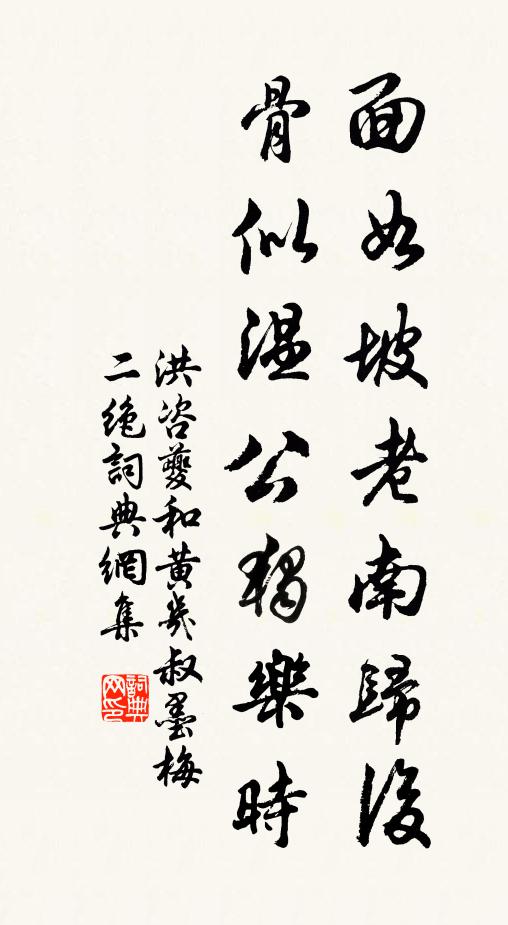 面如坡老南歸後
骨似温公獨樂時
洪咨夔和黄幾叔墨梅
二絶詞典網集
詞典网印